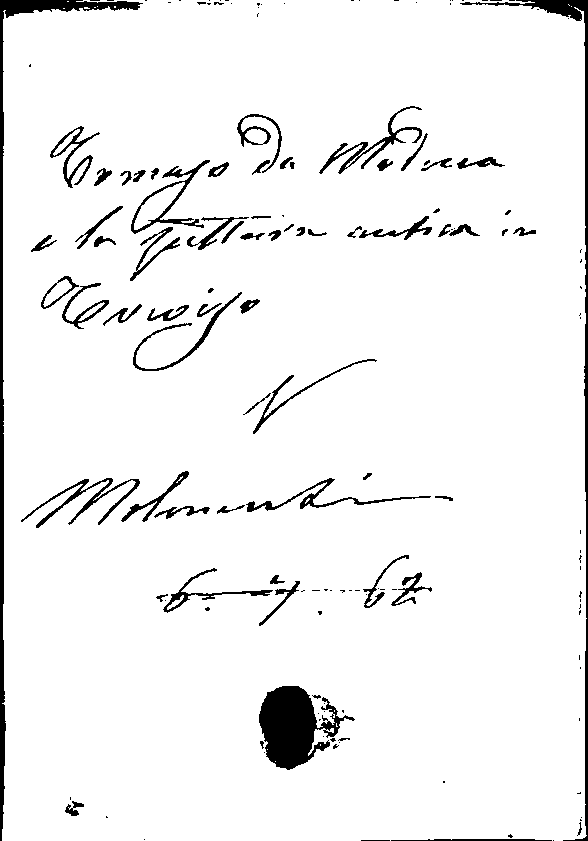 Tomaso da Modena
e la pittura antica in
Treviso
V
Molmenti
6. 4. 62